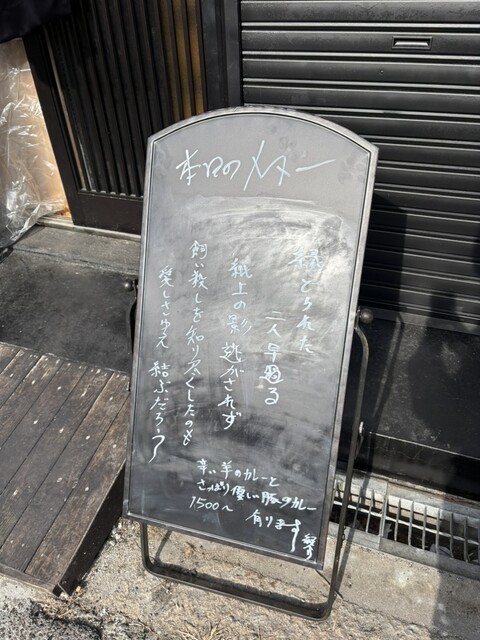 本日のメニュー
縁どられた
二人早廻る
紙上の影 逃がされず
飼い殺しを知り尽くしたのも
愛しさゆえ 結ぶだろう
辛い羊のカレーと
さっぱり優しい豚のカレー
1,500〜 有ります